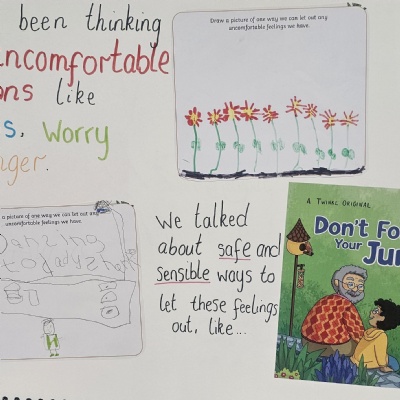 been thinking
ncomfortable
ns like
s, Worry
nger.
Draw a picture of one way we can let out any
uncomfortable feelings we have.
a picture of one way we can let out any
uncomfortable feelings we have.
Dancing
We talked
about safe and
sensible ways to
let these feelings
out, like...
A TWINKL ORIGINAL
Don't Fo
Your
Ju